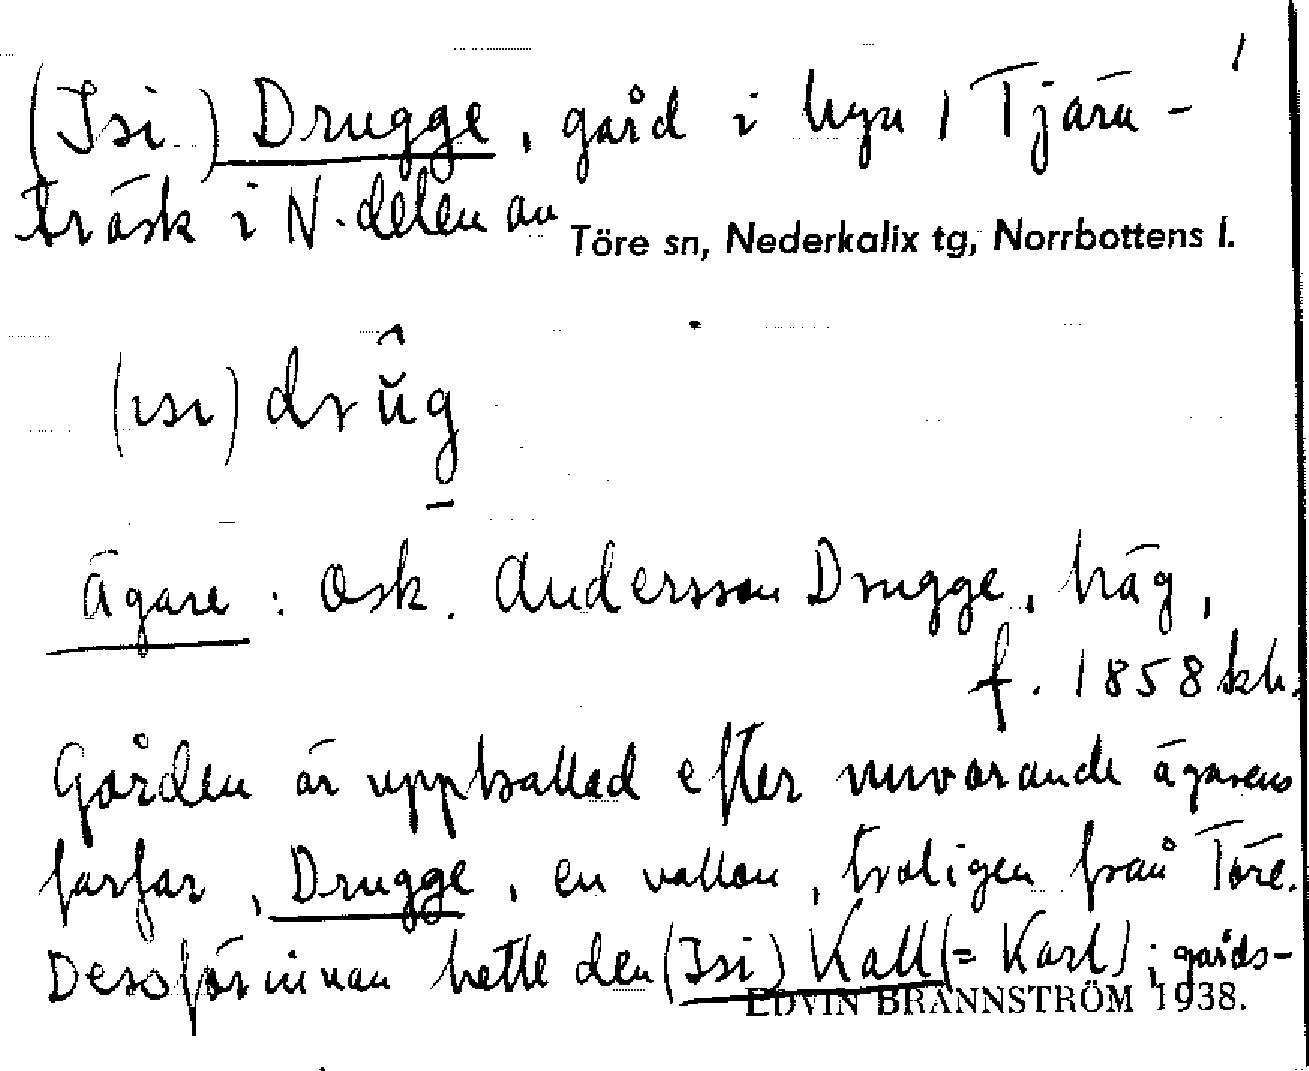 1
(Isi) Drugge, gård i byn i Tjärä-
träsk i N. delen av Töre sn, Nederkalix tg, Norrbottens l.
(ısı) drŭ̂g
Ägare : Osk. Andersson Drugge, häg,
f. 1858
Gården är uppkallad efter nuvarande ägarens
farfar, Drugge, en vallon, troligen från Töre.
Dessförinnan hette den (Isi) Kall (= Karl) ; gårds-
EDVIN BRÄNNSTRÖM 1938.